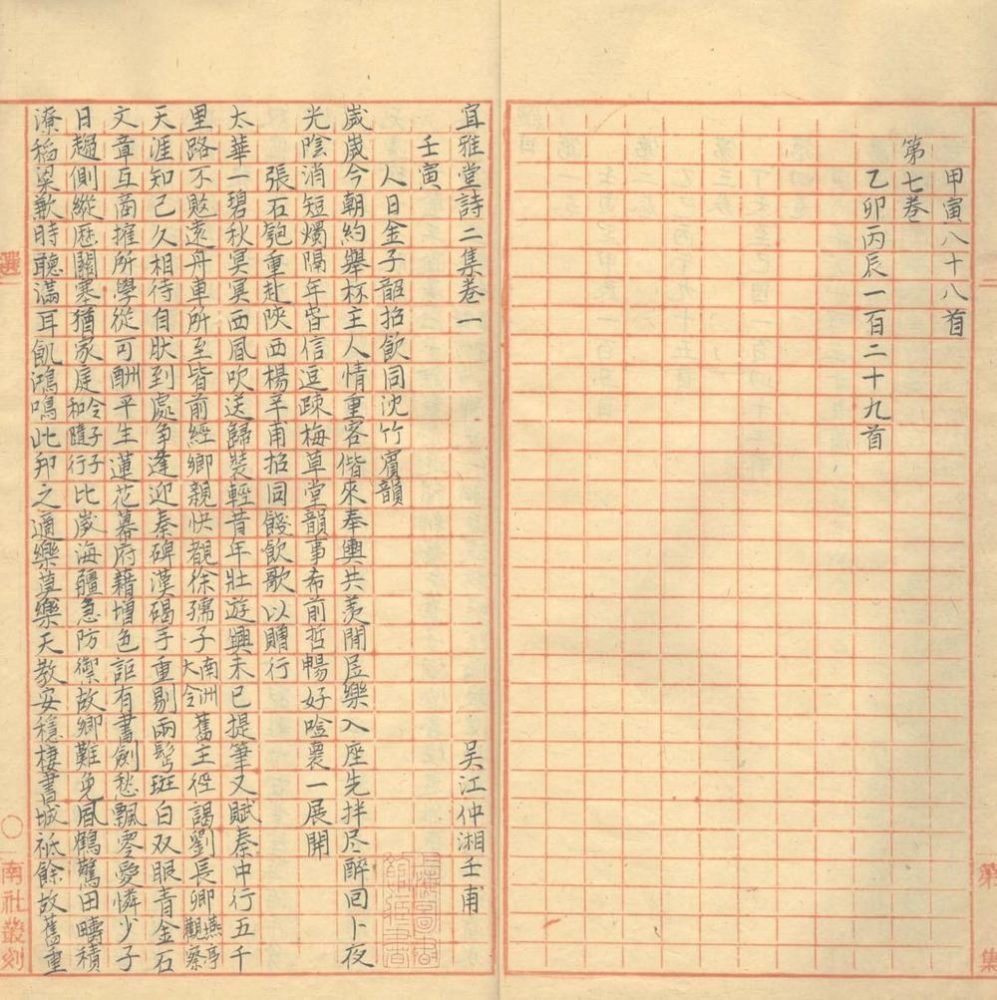 甲寅八十八首
第七卷
乙卯丙辰一百二十九首
宜雅堂詩二集卷一
吴江仲湘壬甫
壬寅
人日金子韶招飲同沈竹賓韻
歲歲今朝約舉杯主人情重客偕來奉輿共羨閒居樂入座先拌尽醉回卜夜
光陰消短燭隔年眘信逗疎梅草堂韻事希前哲暢好唫裠一展開
張石匏重赴陝西楊辛甫招同餞飲歌以贈行
太華一碧秋冥冥西風吹送歸裝輕昔年壯遊興未已提筆又賦秦中行五千
里路不敗遠舟車所至皆前經卿親快覩徐孺子南洲大令舊主徑謁劉長卿燕亭觀察
天涯知己久相待自狀到處争逢迎秦碑漢碣手重剔兩髩斑白双眼青金石
文章互商搉所學從可酬平生蓮花幕府藉增色詎有書劍愁飄零愛憐少子
日趨側縱歷關塞猶家庭令子和子隨行比歲海疆急防禦故鄉難免風鶴驚田疇積
潦稻粱歉時聽滿耳飢鴻鳴此邦之適樂莫樂天教安穩棲書城祇餘故舊重
選
○
南社叢刻
第
集